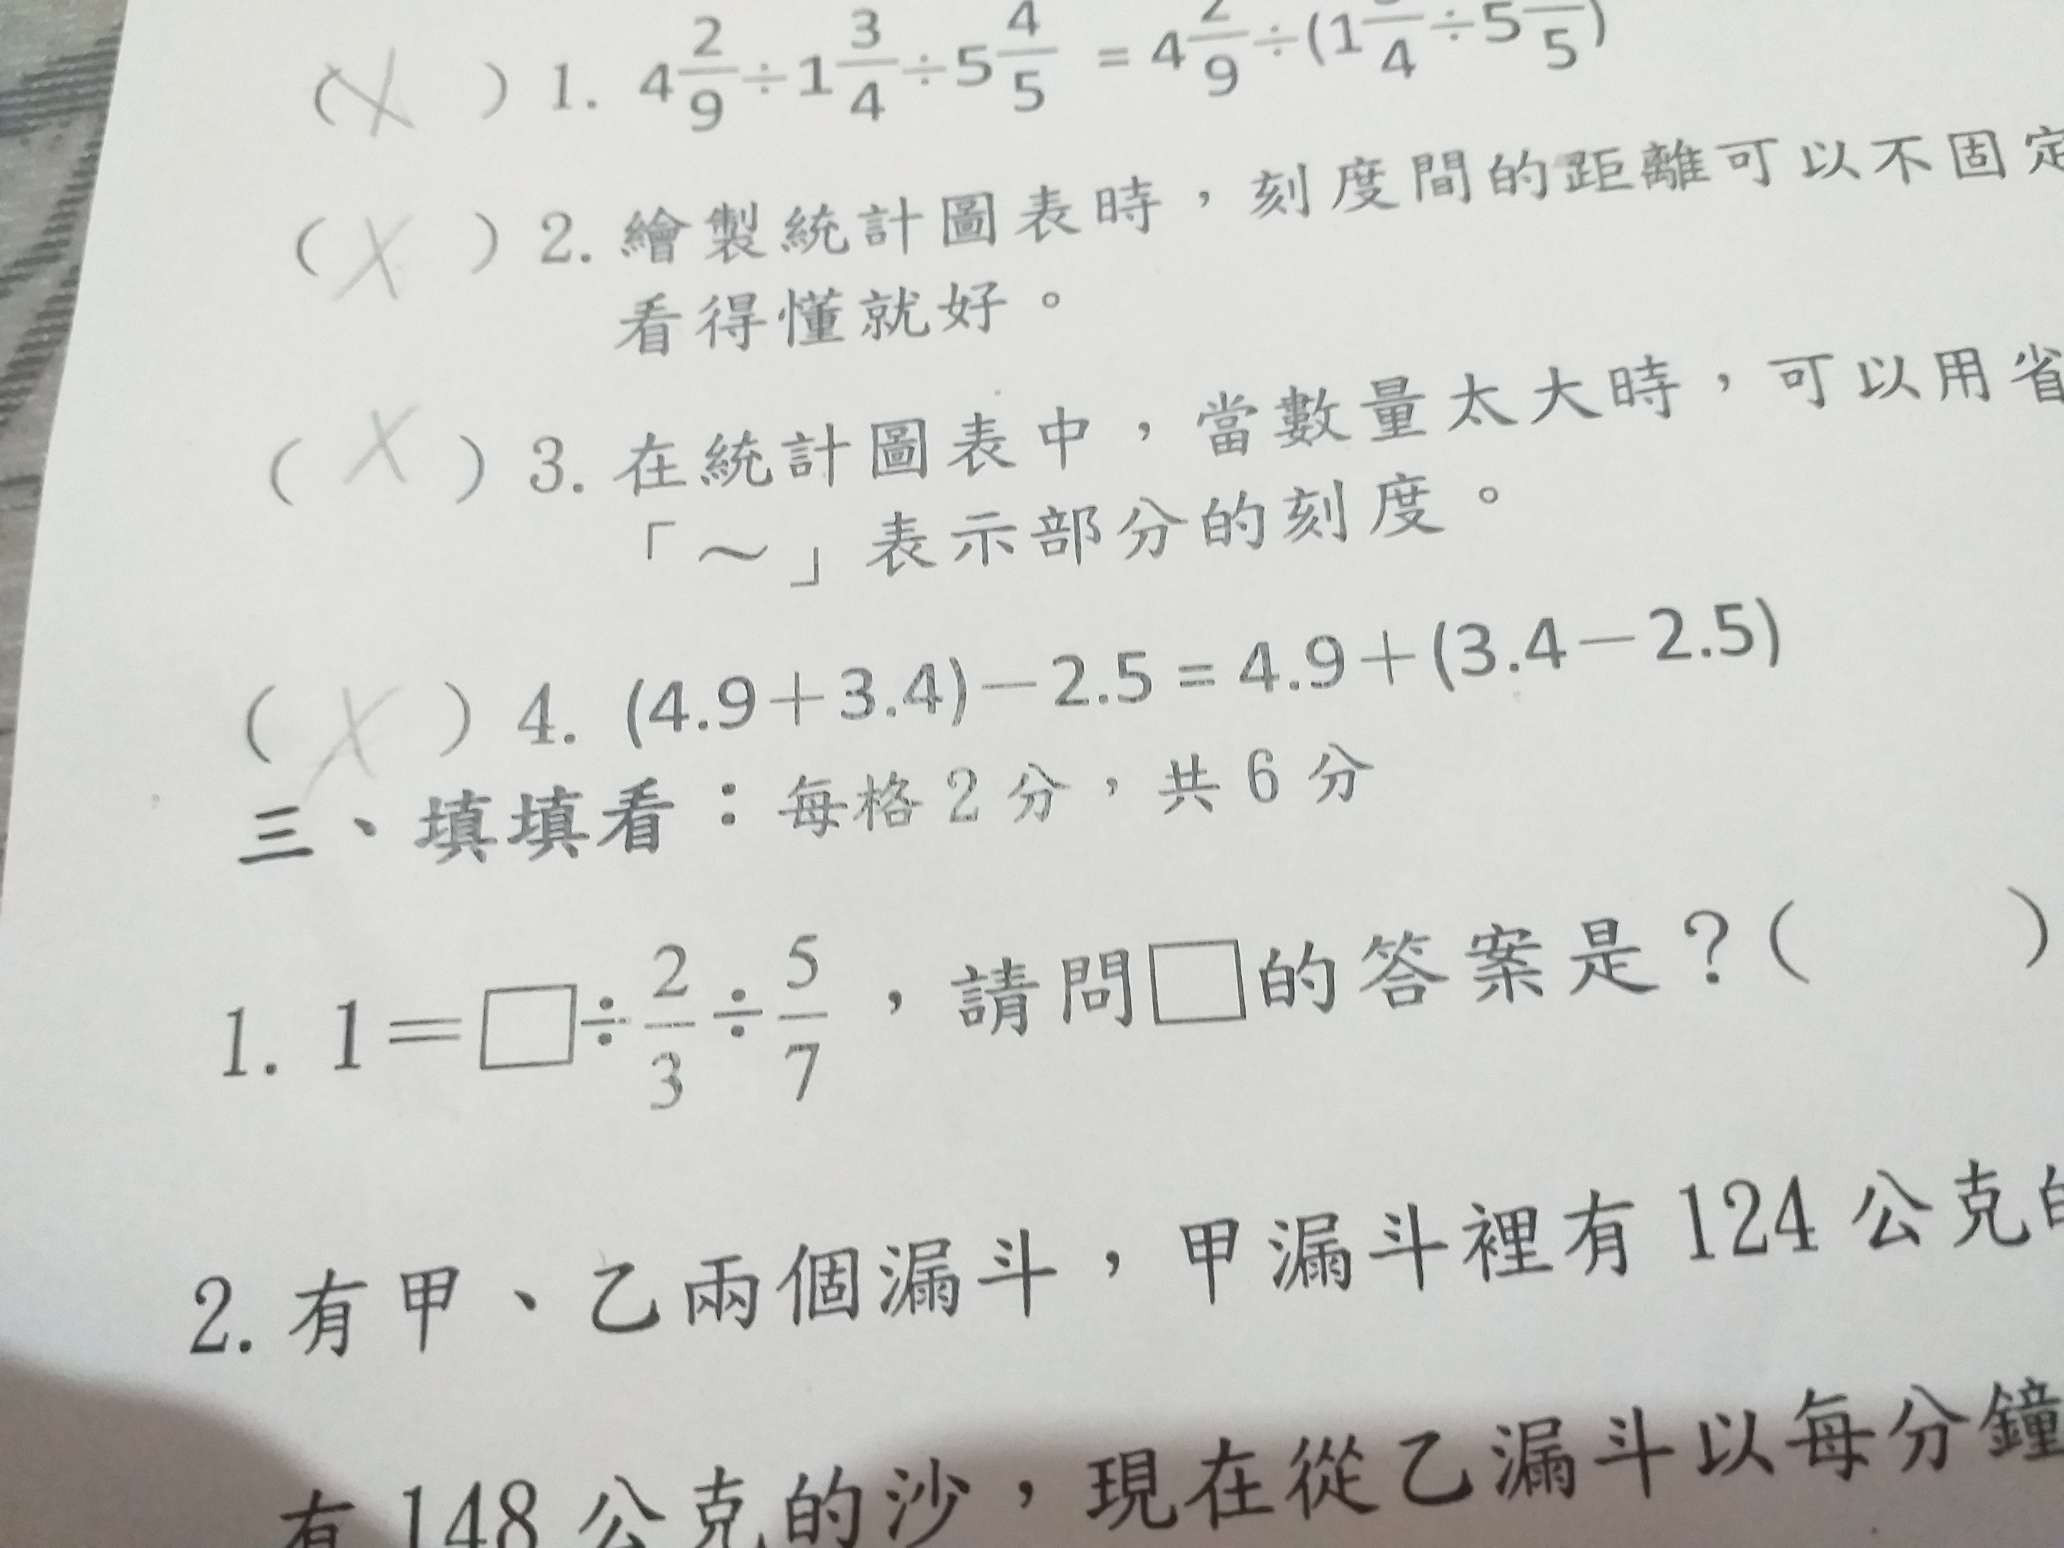 (X) 1. 4 2/9 ÷ 1 3/4 ÷ 5 4/5 = 4 2/9 ÷ (1 3/4 ÷ 5 /5)
(X) 2. 繪製統計圖表時，刻度間的距離可以不固定
看得懂就好。
(X) 3. 在統計圖表中，當數量太大時，可以用省
「～」表示部分的刻度。
(X) 4. (4.9＋3.4)－2.5＝4.9＋(3.4－2.5)
三、填填看：每格2分，共6分
1. 1＝□÷2/3÷5/7，請問□的答案是？(　　)
2. 有甲、乙兩個漏斗，甲漏斗裡有124公克的
有148公克的沙，現在從乙漏斗以每分鐘